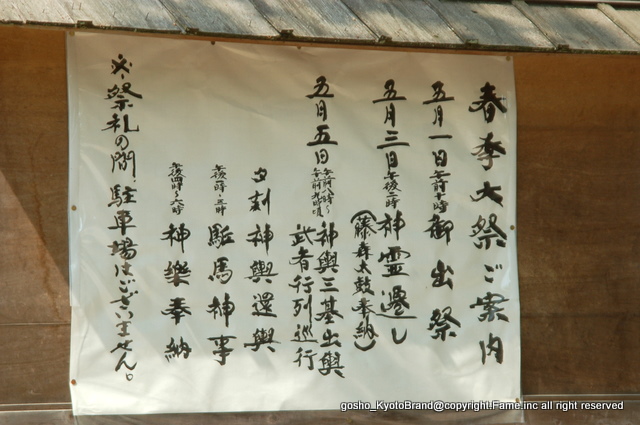 春季大祭ご案内
五月一日 午前十時 御出祭
五月三日 午後二時 神霊遷し
(藤森太鼓奉納)
五月五日 午前八時〜 神輿三基出輿
午前九時頃 武者行列巡行
夕刻 神輿還輿
午後一時・三時 駈馬神事
午後四時〜六時 神樂奉納
祭礼の間、駐車場はございません。
gosho_KyotoBrand@copyright.Fame.inc all right reserved